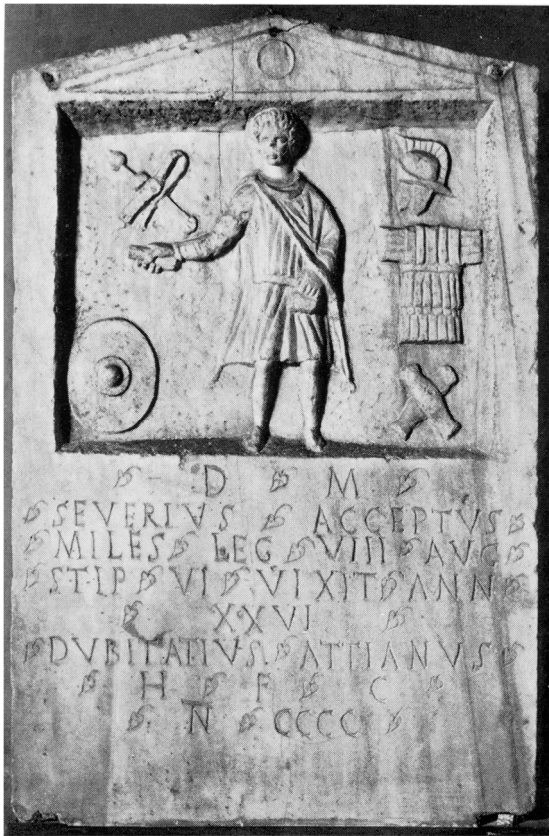 D M
SEVERIVS ACCEPTVS
MILES LEG VIII AVG
STIP VI VIXIT ANN
XXVI
DVBITATIVS ATTIANVS
H F C
N CCCC